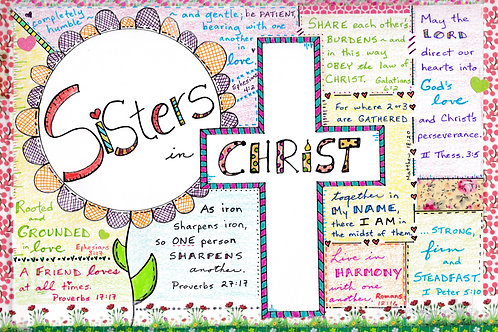 Be completely
humble
~ and gentle; be PATIENT,
bearing with one
another in
love
Ephesians
4:2
SHARE each other's
BURDENS ~ and
in this way
OBEY the law of
CHRIST. Galatians
6:2
May the
LORD
direct our
hearts into
God's
love
and Christ's
perseverance.
II Thess. 3:5
Sisters
in
CHRIST
For where 2 or 3
are GATHERED
together in
My NAME,
there I AM in
the midst of them
Matthew 18:20
Rooted
and
GROUNDED
in love
Ephesians
3:17
A FRIEND loves
at all times.
Proverbs 17:17
As iron
sharpens iron,
so ONE person
SHARPENS
another.
Proverbs 27:17
Live in
HARMONY
with one
another. Romans
12:16
... STRONG,
firm
and
STEADFAST
I Peter 5:10